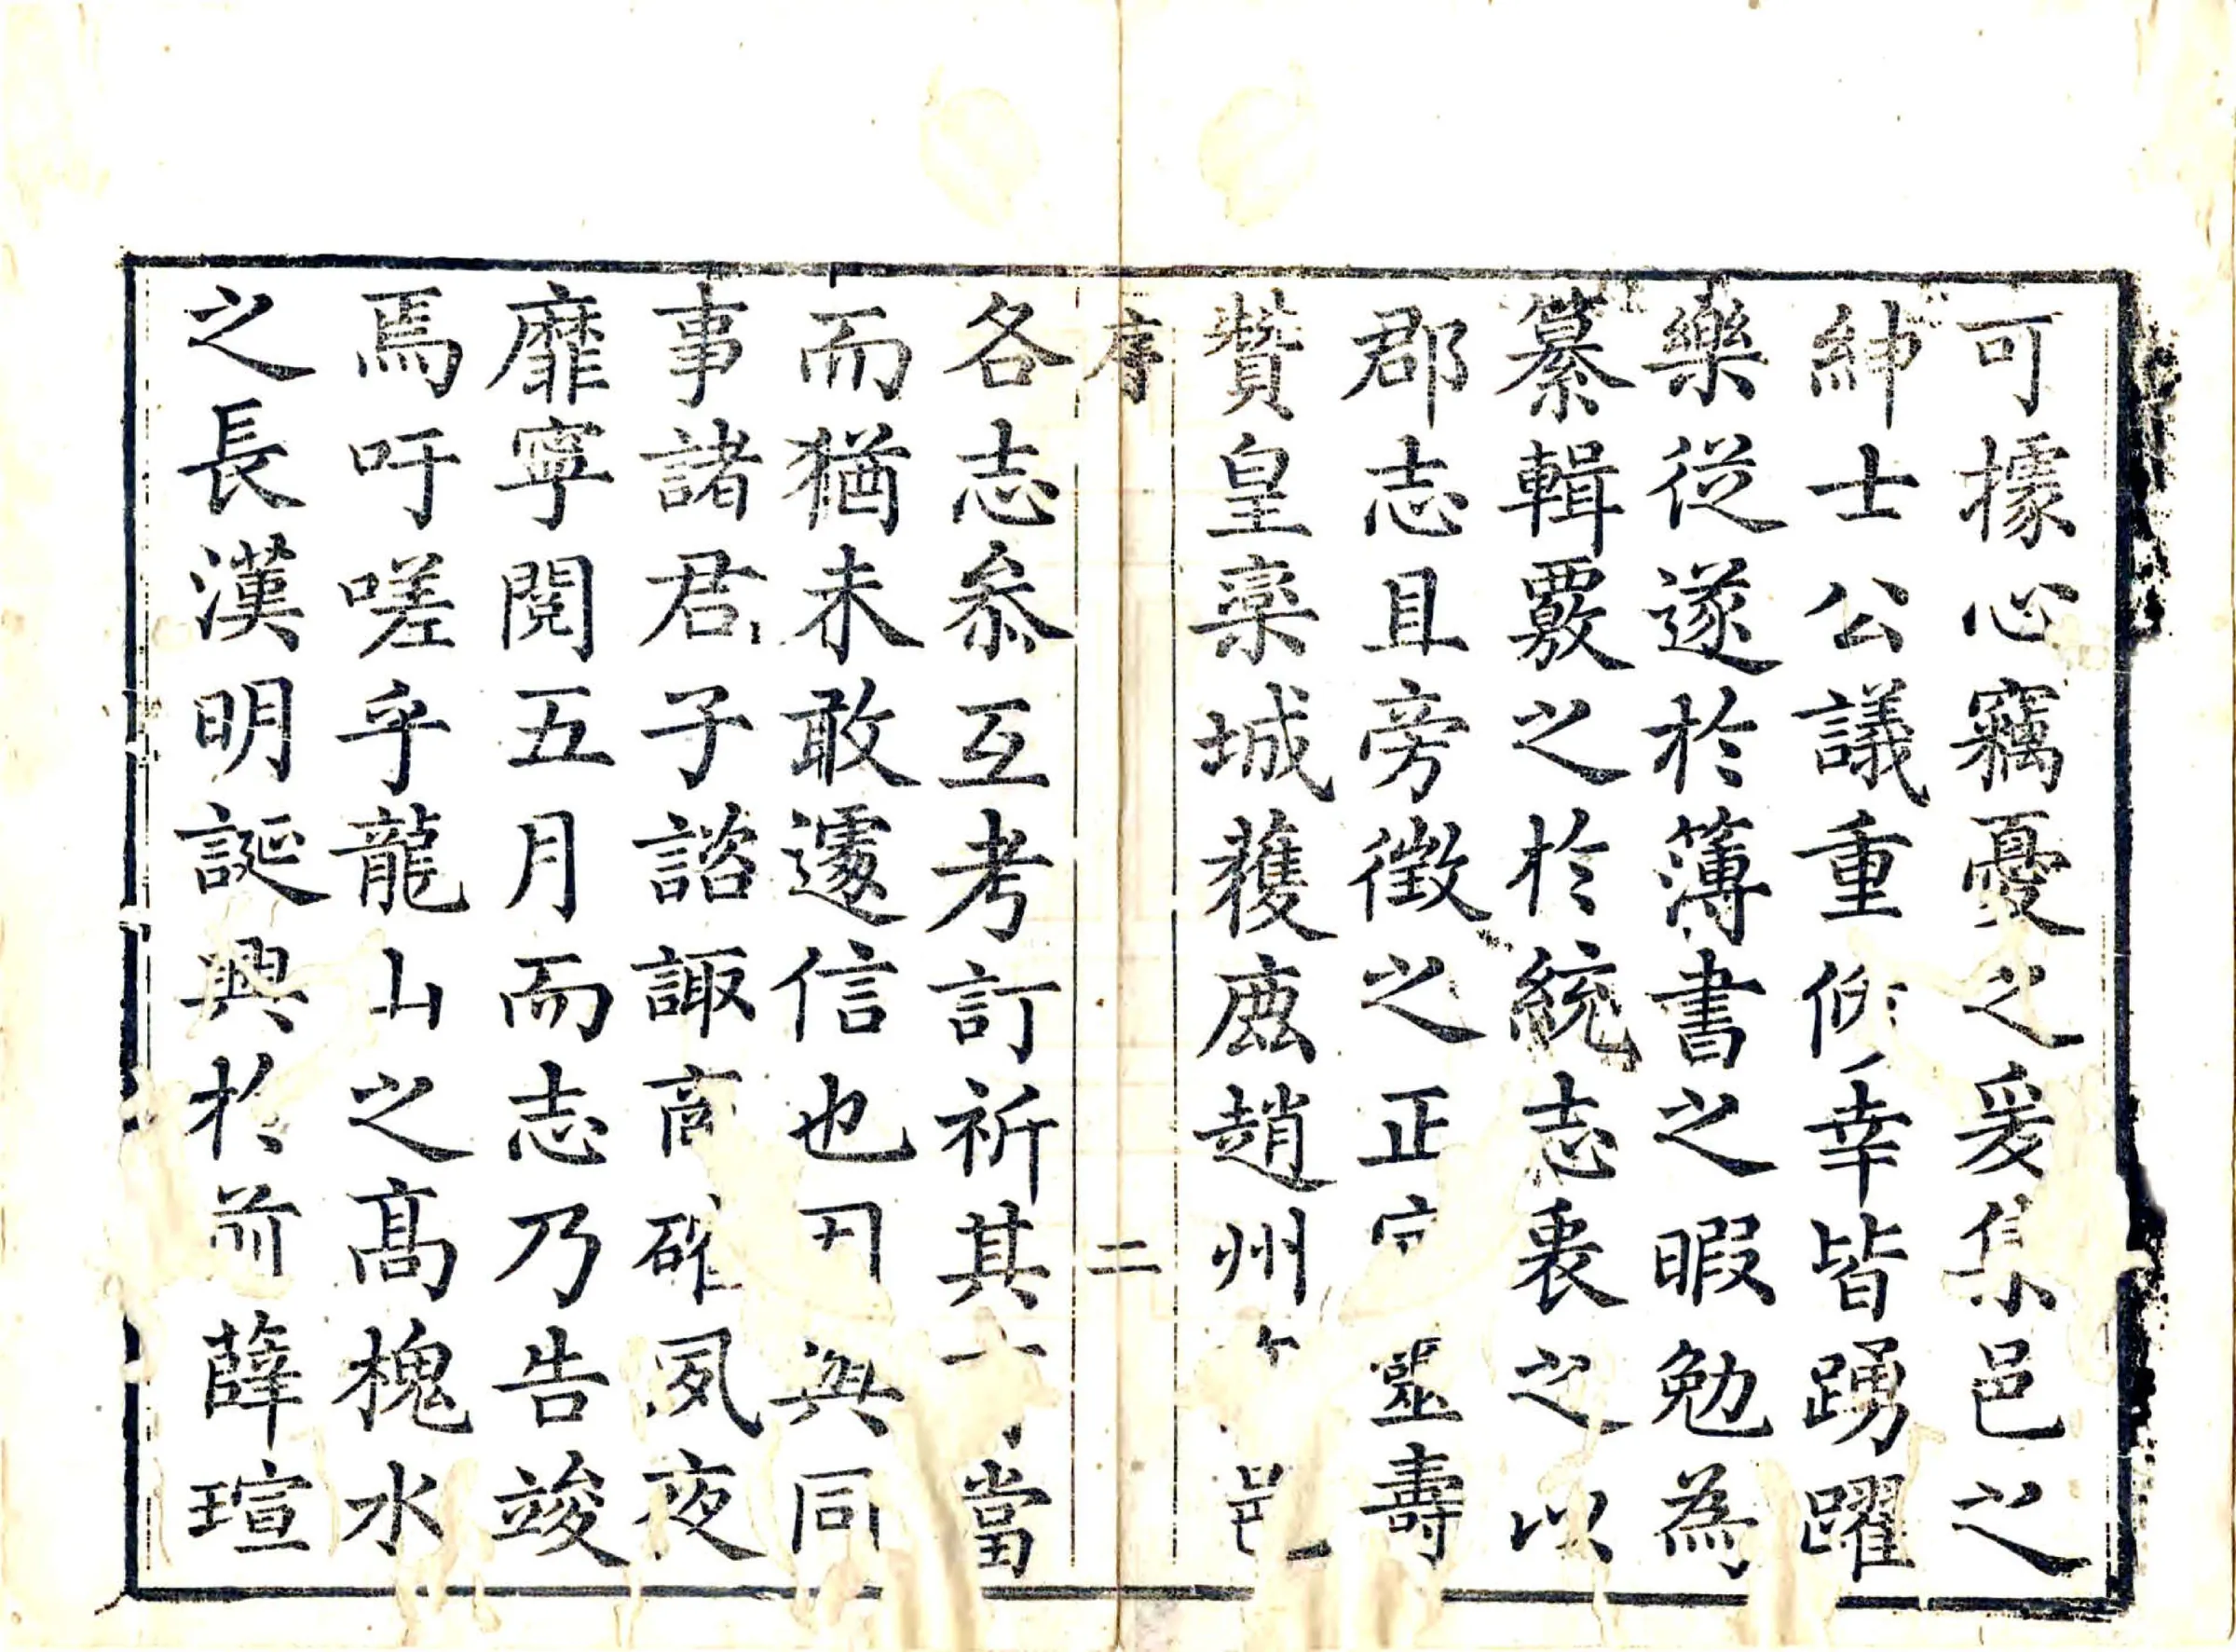 可據心竊憂之爰集邑之
紳士公議重修幸皆踴躍
樂從遂於簿書之暇勉為
纂輯覈之於統志衷之以
郡志且旁徵之正定靈壽
贊皇欒城獲鹿趙州邑
序 二
各志叅互考訂祈其當
而猶未敢遽信也因與同
事諸君子諮諏商確夙夜
靡寧閱五月而志乃告竣
焉吁嗟乎龍山之高槐水
之長漢明誕興於前薛瑄